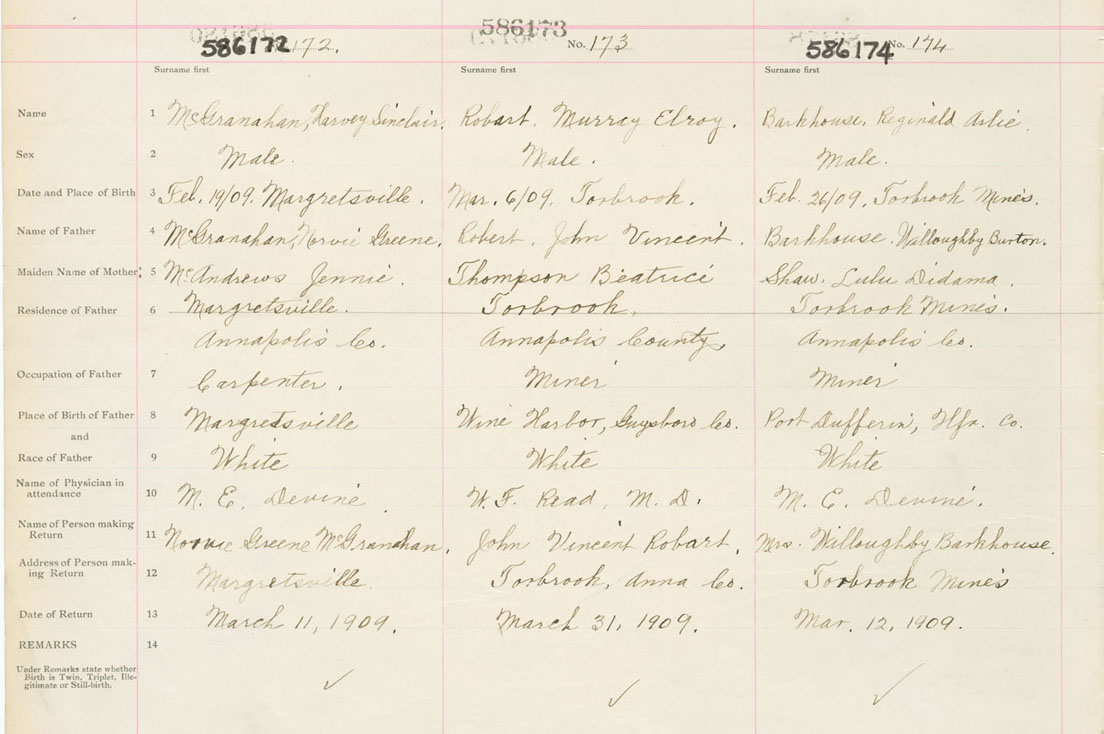 586172 172.
586173 No. 173
586174 No. 174
Surname first Surname first Surname first
Name 1 McGranahan, Harvey Sinclair. Robart. Murray Elroy. Barkhouse. Reginald Arlie.
Sex 2 Male. Male. Male.
Date and Place of Birth 3 Feb. 19/09. Margretsville. Mar. 6/09. Torbrook. Feb. 26/09. Torbrook Mines.
Name of Father 4 McGranahan, Norvie Greene. Robert. John Vincent. Barkhouse. Willoughby Burton.
Maiden Name of Mother: 5 McAndrews Jennie. Thompson Beatrice Shaw. Lulu Didama.
Residence of Father 6 Margretsville. Torbrook. Torbrook Mines.
Annapolis Co. Annapolis County, Annapolis Co.
Occupation of Father 7 Carpenter. Miner Miner
Place of Birth of Father 8 Margretsville Wine Harbor, Guysboro Co. Port Dufferin, Hfx. Co.
and
Race of Father 9 White White White
Name of Physician in
attendance 10 M. E. Devine W. F. Read, M. D. M. E. Devine.
Name of Person making
Return 11 Norvie Greene McGranahan. John Vincent Robart. Mrs. Willoughby Barkhouse.
Address of Person mak-
ing Return 12 Margretsville. Torbrook, Anna Co. Torbrook Mines
Date of Return 13 March 11, 1909. March 31, 1909. Mar. 12, 1909.
REMARKS 14
Under Remarks state whether
Birth is Twin, Triplet, Ille-
gitimate or Still-birth.